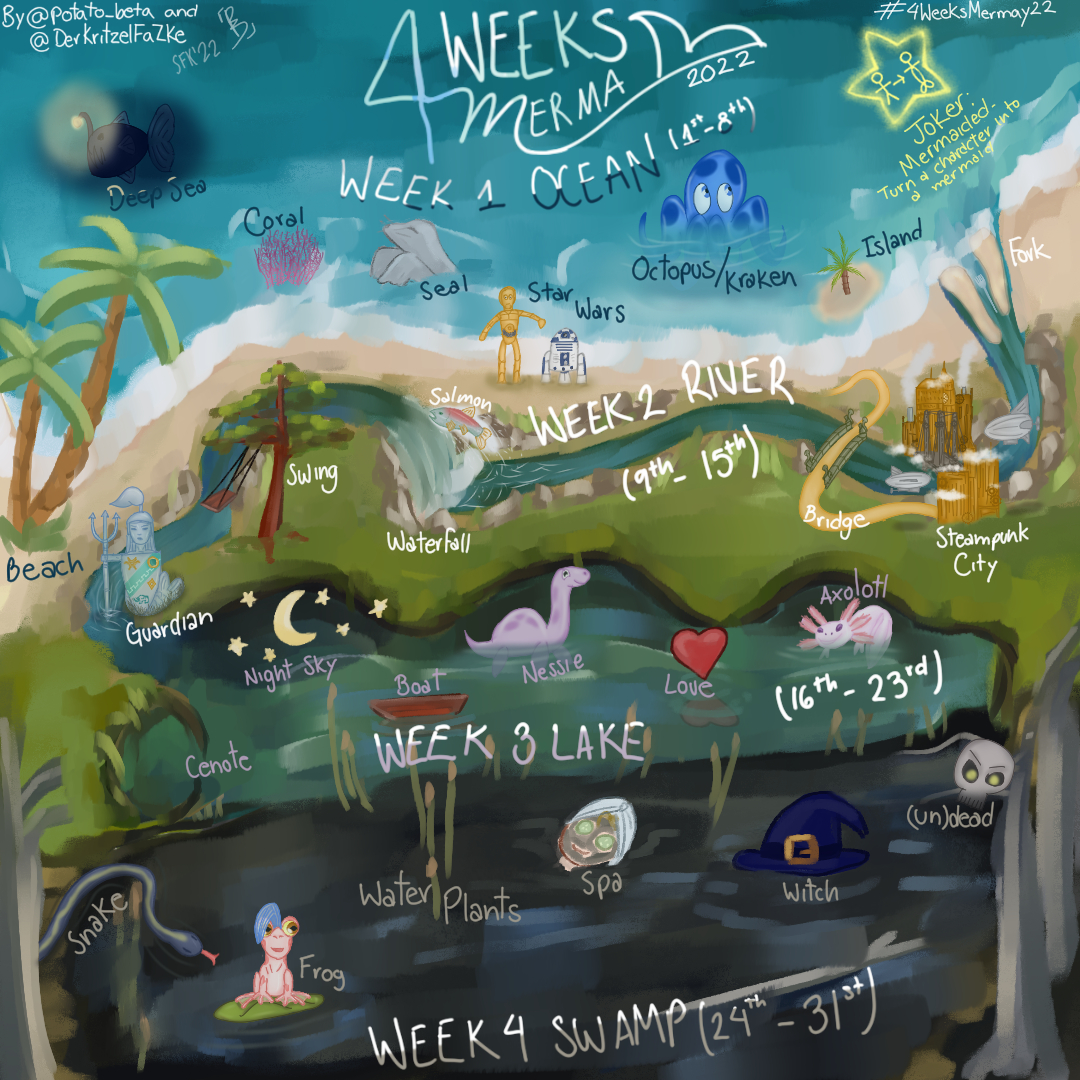 By@potato_beta and
@DerkritzelFaZke
SFK'22
#4WeeksMermay22
4 WEEKS
MERMAY
2022
WEEK 1 OCEAN (1st-8th)
Joker:
Mermaided.
Turn a character into
a mermaid
Deep Sea
Coral
Seal
Star
Wars
Octopus/Kraken
Island
Fork
WEEK 2 RIVER
(9th- 15th)
Salmon
Swing
Waterfall
Bridge
Steampunk
City
Beach
Guardian
Night Sky
Nessie
Axolotl
Boat
Love
(16th- 23rd)
WEEK 3 LAKE
Cenote
(un)dead
Spa
Witch
Water Plants
Snake
Frog
WEEK 4 SWAMP (24th - 31st)